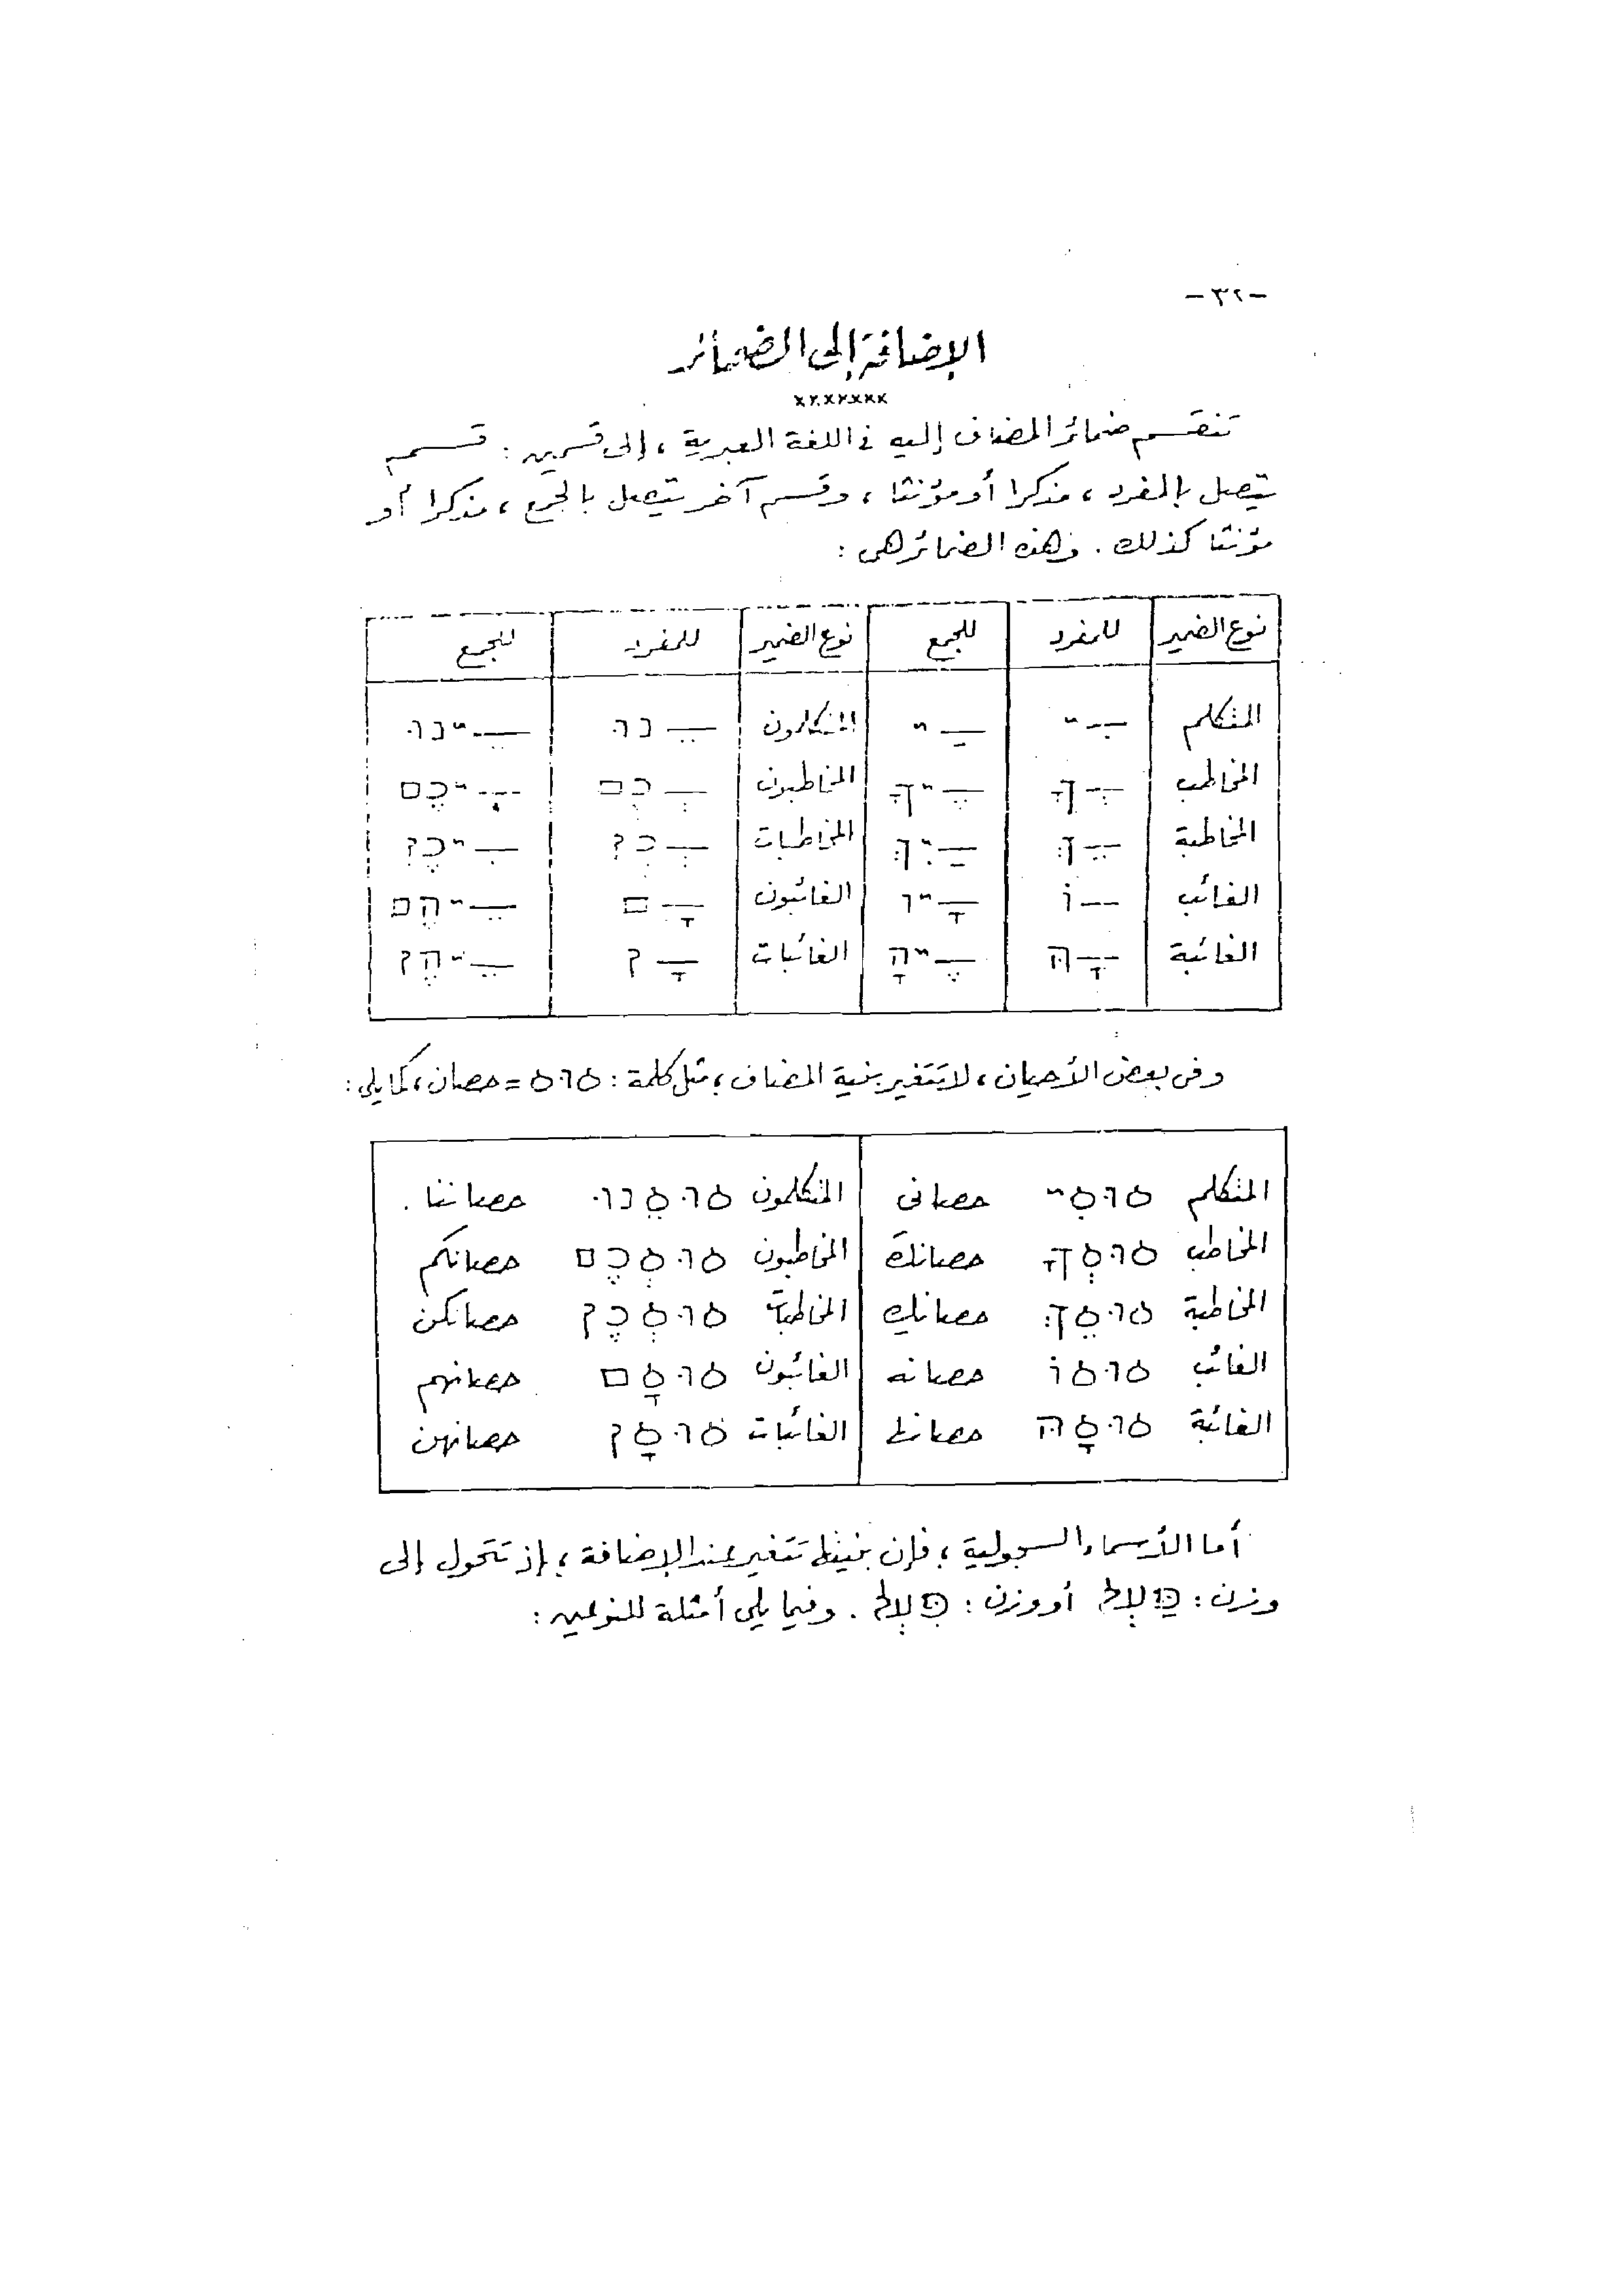 -٣٢-
الإضافة إلى الضمائر
×××××××
تنقسم ضمائر المضاف إليه فى اللغة العبرية ، إلى قسمين : قسم
يتصل بالمفرد ، مذكرا أو مؤنثا ، وقسم آخر يتصل بالجمع ، مذكرا أو
مؤنثا كذلك . وهذه الضمائر هى :
نوع الضمير للمفرد للجمع نوع الضمير للمفرد للجمع
المتكلم ־ִ־י ־ַ־י المتكلمون ־ֵ־נוּ ־ֵ־ינוּ
المخاطب ־ְ־ךָ ־ֶ־יךָ المخاطبون ־ְ־כֶם ־ֵ־יכֶם
المخاطبة ־ֵ־ךְ ־ַ־יִךְ المخاطبات ־ְ־כֶן ־ֵ־יכֶן
الغائب ־־וֹ ־ָ־יו الغائبون ־ָ־ם ־ֵ־יהֶם
الغائبة ־ָ־הּ ־ֶ־יהָ الغائبات ־ָ־ן ־ֵ־יהֶן
وفى بعض الأحيان ، لا تتغير بنية المضاف ، مثل كلمة : סוּס = حصان ، كما يلى :
المتكلم סוּסִי حصانى المتكلمون סוּסֵנוּ حصاننا .
المخاطب סוּסְךָ حصانكَ المخاطبون סוּסְכֶם حصانكم
المخاطبة סוּסֵךְ حصانكِ المخاطبات סוּסְכֶן حصانكن
الغائب סוּסוֹ حصانه الغائبون סוּסָם حصانهم
الغائبة סוּסָהּ حصانها الغائبات סוּסָן حصانهن
أما الأسماء السجولية ، فإن بنيتها تتغير عند الإضافة ، إذ تتحول إلى
وزن : פַּעְל أو وزن : פִּעְל . وفيما يلى أمثلة للنوعين :